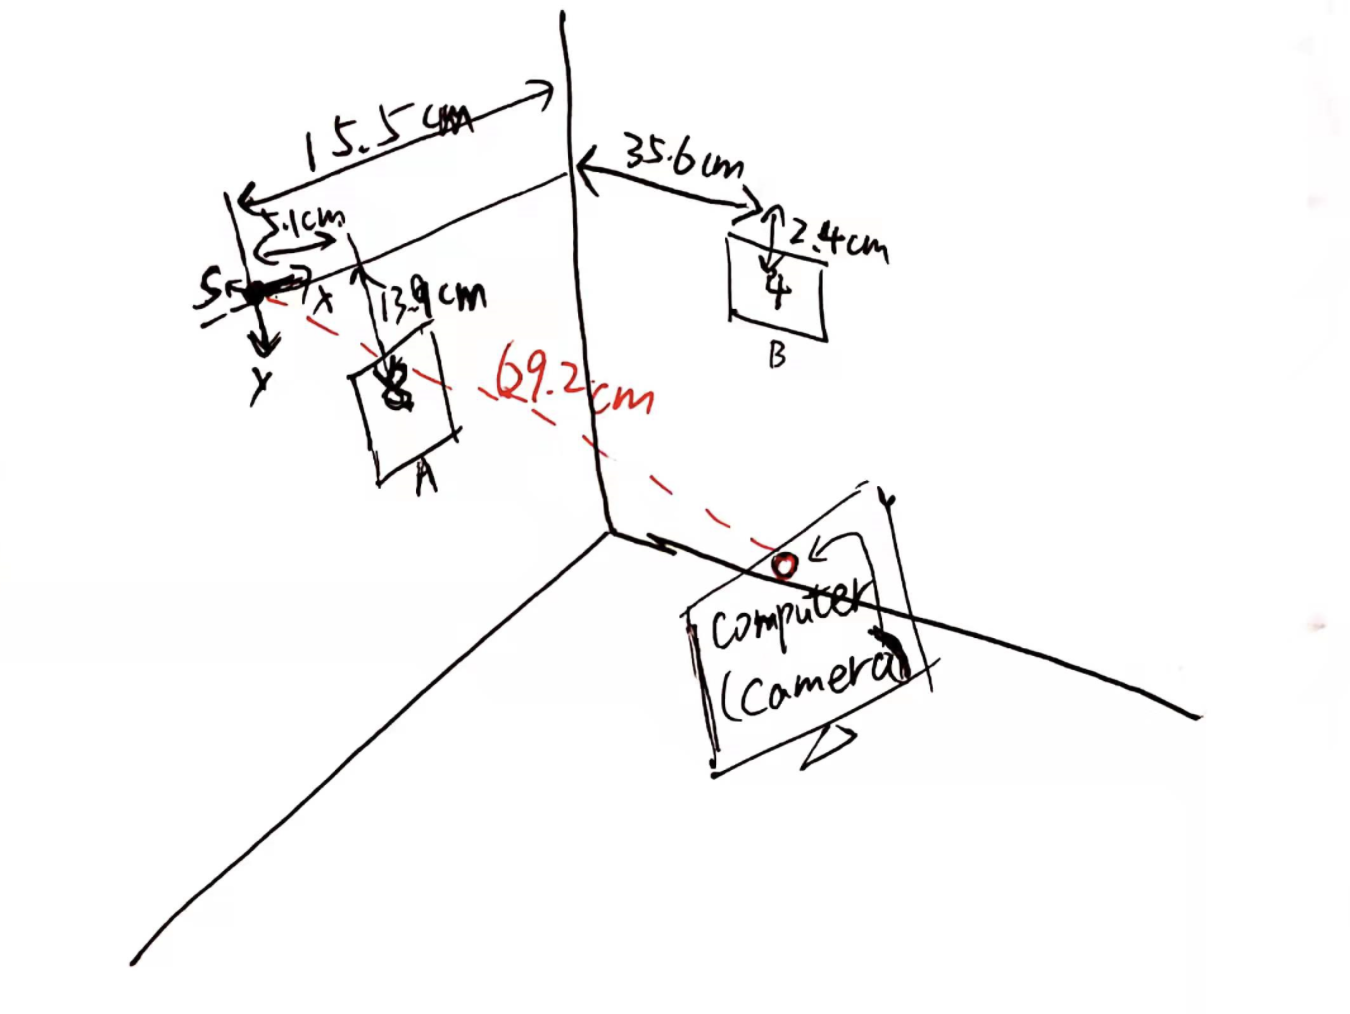 15.5cm
35.6cm
5.1cm
2.4cm
S
X
13.9cm
4
Y
B
8
69.2cm
A
computer
(camera)